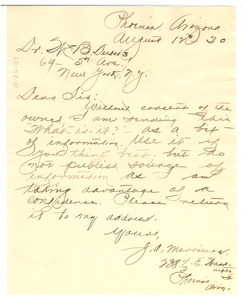 Phoenix Arizona
August 12 30
Dr. W E B Dubois
69 - 5th Ave.
New York, N.Y.
Dear Sir:
Without consent of the
owner I am sending this
"What-is-it?" as a bit
of information. Use it if
you think best, but do
not publish source of
information as I am
taking advantage of a
confidence. Please return
it to my address.
Yours,
J. A. Merriman
E. Wash
Phoenix
Ariz.